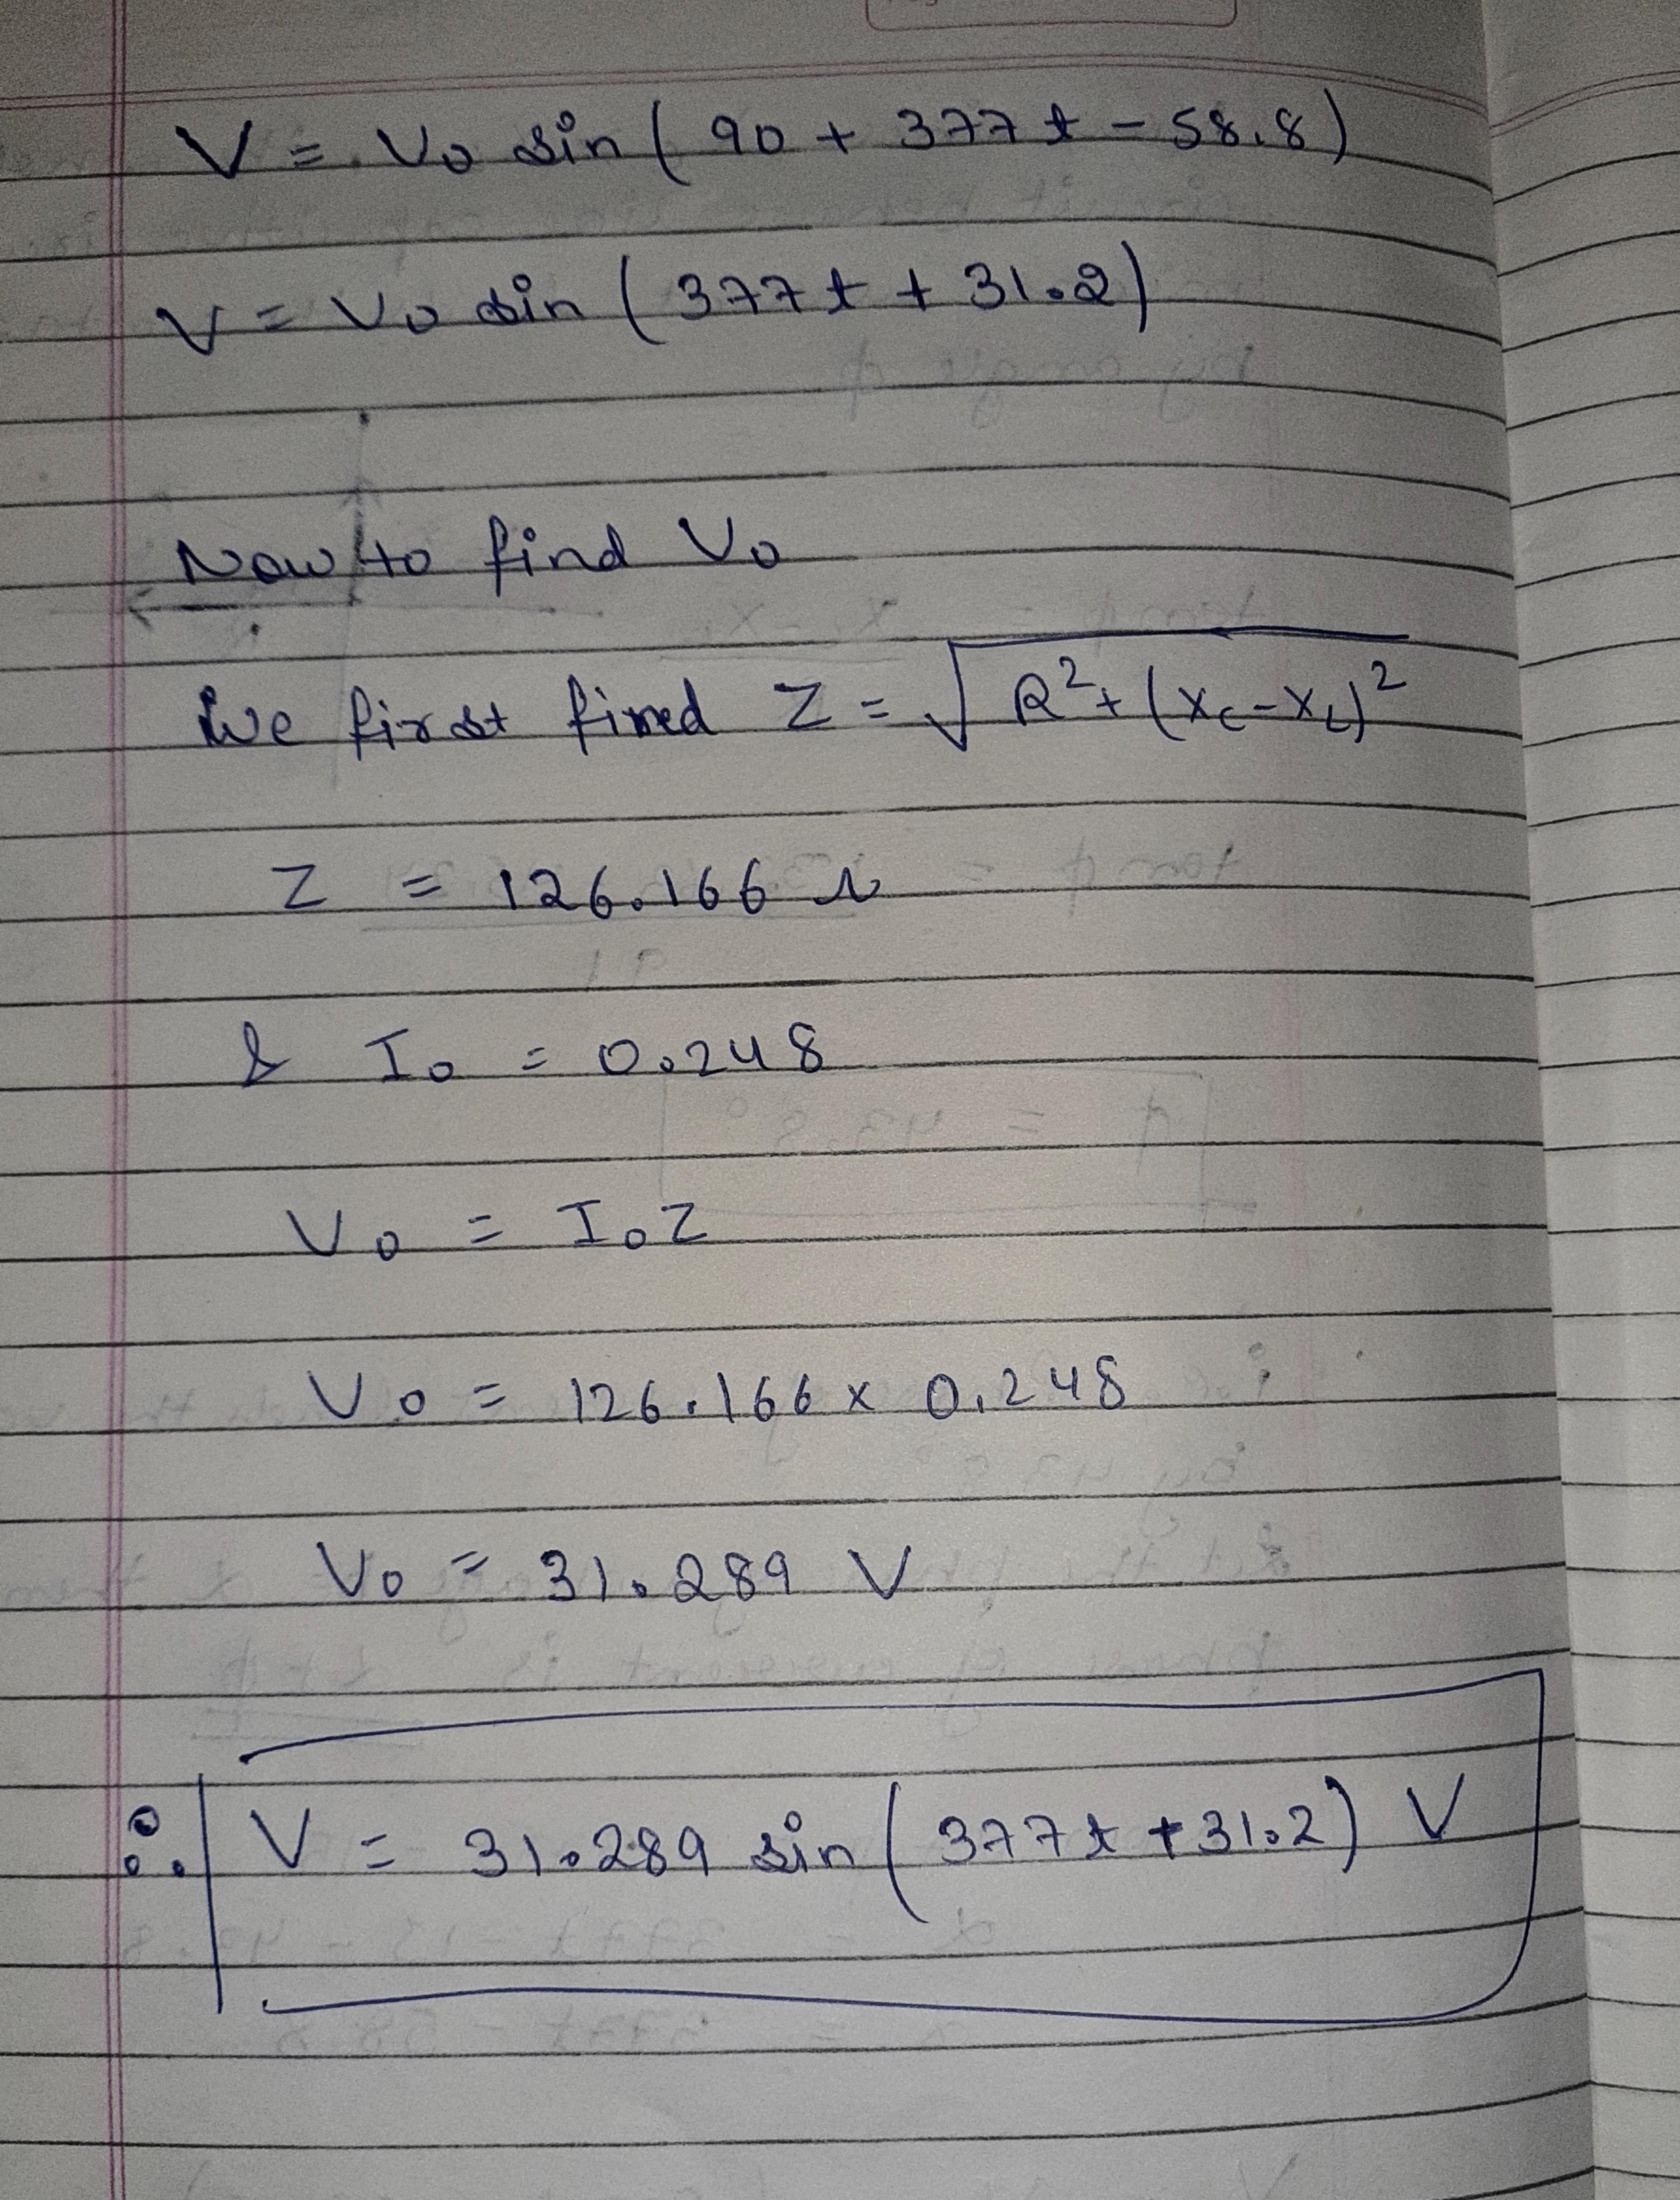 V = V₀ sin ( 90 + 377 t - 58.8)
V = V₀ sin ( 377 t + 31.2)
Now to find V₀
We first fined Z = √R² + (Xc - XL)²
Z = 126.166 Ω
& I₀ = 0.248
V₀ = I₀Z
V₀ = 126.166 x 0.248
V₀ = 31.289 V
∴ V = 31.289 sin ( 377 t + 31.2) V